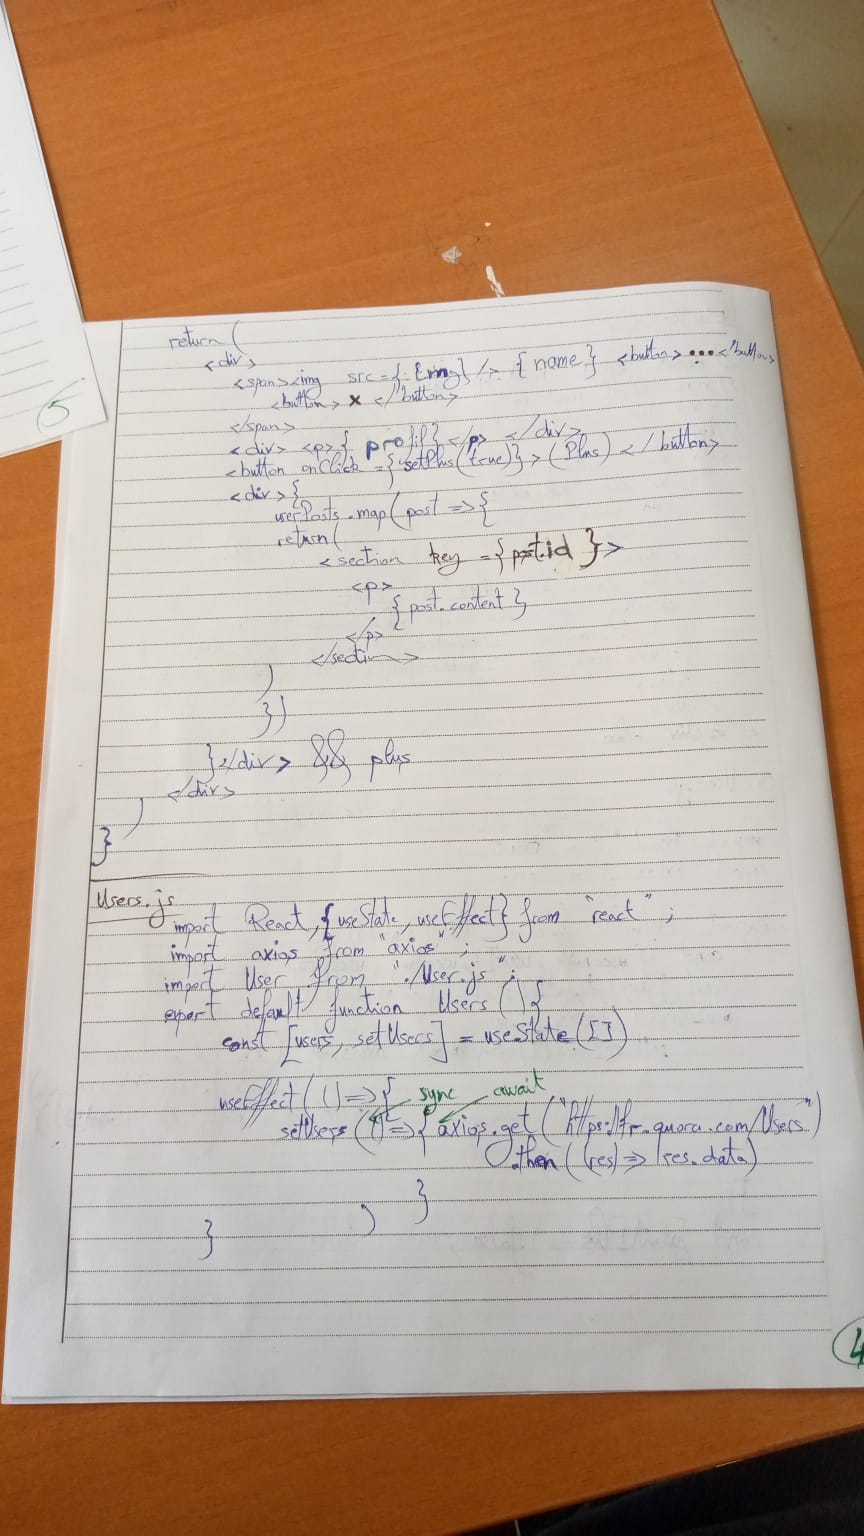 5
return (
<div>
<span><img src={img} /> {name} <button> ... </button>
<button> x </button>
</span>
<div> <p>{ profil} </p> </div>
<button onClick ={setPlus(true)} > (Plus) </button>
<div>{
userPosts.map(post =>{
return(
<section key ={post.id }>
<p>
{post.content}
</p>
</section>
)
})
}</div> && plus
</div>
)
}
Users.js
import React,{useState, useEffect} from "react" ;
import axios from "axios" ;
import User from "./User.js" ;
export default function Users () {
const [users, setUsers] = useState ([])
useEffect( ()=>{ sync await
setUsers (()=>{ axios.get("https://fr.quora.com/Users")
.then( (res)=> res.data)
}
)
}
4